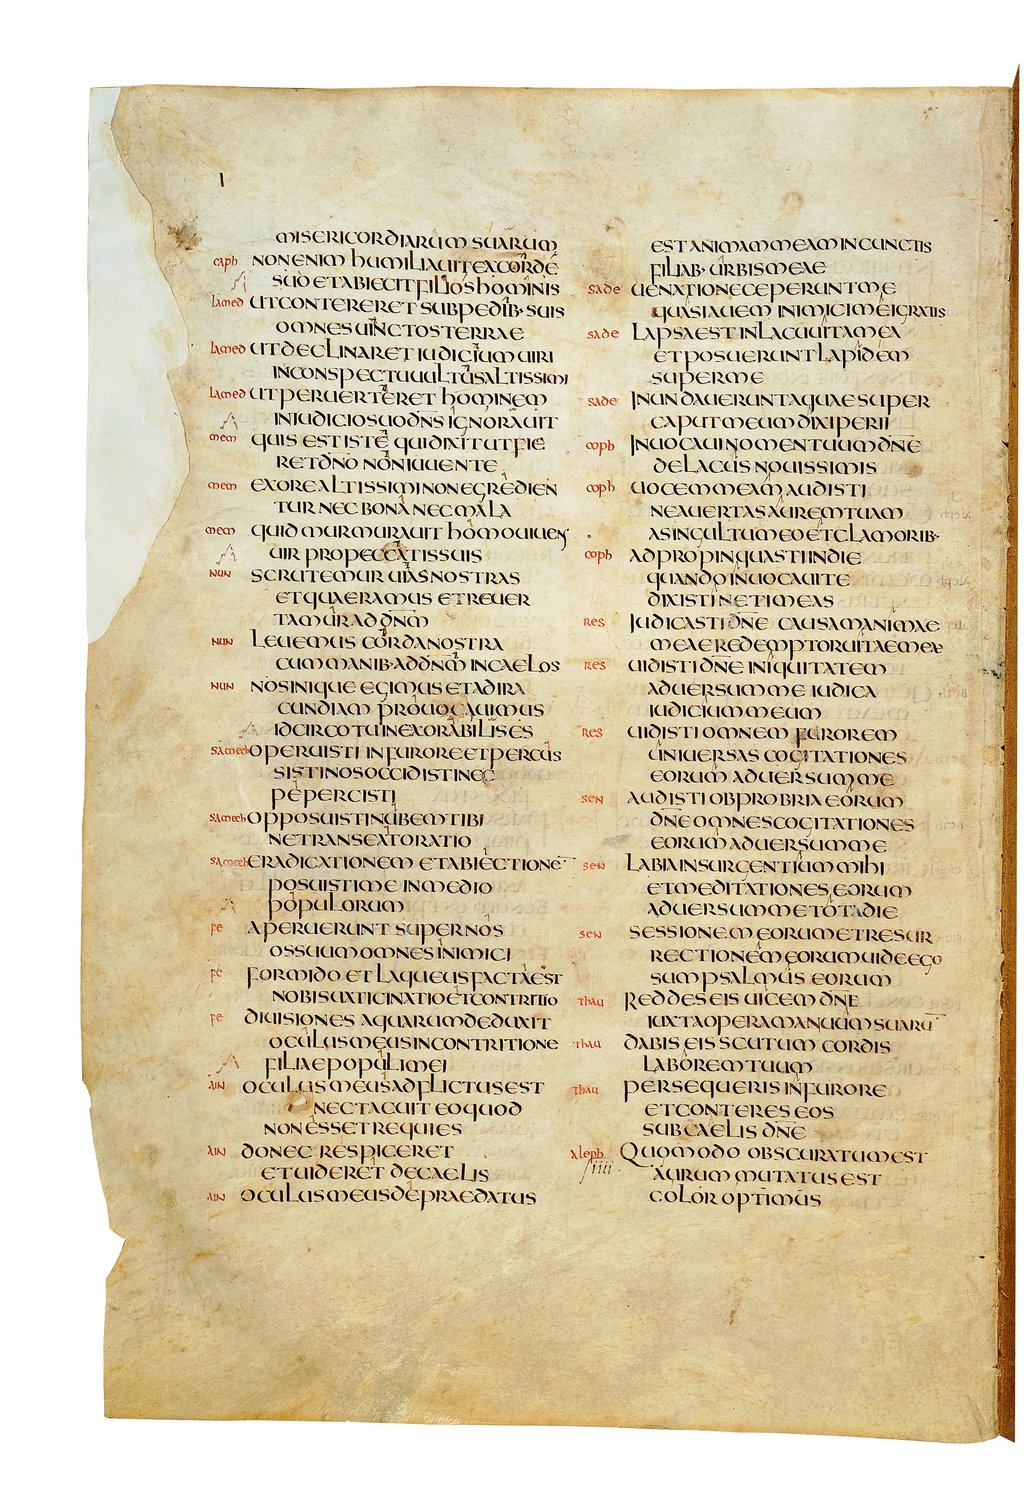 MISERICORDIARUM SUARUM
caph NON ENIM HUMILIAUIT EX CORDE
SUO ET ABIECIT FILIOS HOMINIS
lamed UT CONTERERET SUB PEDIB· SUIS
OMNES UINCTOS TERRAE
lamed UT DECLINARET IUDICIUM UIRI
IN CONSPECTU UULTUS ALTISSIMI
lamed UT PERUERTERET HOMINEM
IN IUDICIO SUO DN̄S IGNORAUIT
mem QUIS EST ISTE QUI DIXIT UT FIE
RET DN̄O NON IUUENTE
mem EX ORE ALTISSIMI NON EGREDIEN
TUR NEC BONA NEC MALA
mem QUID MURMURAUIT HOMO UIUENS
UIR PRO PECCATIS SUIS
NUN SCRUTEMUR UIAS NOSTRAS
ET QUAERAMUS ET REUER
TAMUR AD DN̄M
NUN LEUEMUS CORDA NOSTRA
CUM MANIB· AD DN̄M IN CAELOS
NUN NOS INIQUE EGIMUS ET AD IRA
CUNDIAM PROUOCAUIMUS
IDCIRCO TU INEXORABILIS ES
SAmech OPERUISTI IN FURORE ET PERCUS
SISTI NOS OCCIDISTI NEC
PEPERCISTI
SAmech OPPOSUISTI NUBEM TIBI
NE TRANSEAT ORATIO
SAmech ERADICATIONEM ET ABIECTIONE¯
POSUISTI ME IN MEDIO
POPULORUM
FE APERUERUNT SUPER NOS
OS SUUM OMNES INIMICI
FE FORMIDO ET LAQUEUS FACTA EST
NOBIS UATICINATIO ET CONTRITIO
FE DIUISIONES AQUARUM DEDUXIT
OCULUS MEUS IN CONTRITIONE
FILIAE POPULI MEI
AIN OCULUS MEUS ADFLICTUS EST
NEC TACUIT EO QUOD
NON ESSET REQUIES
AIN DONEC RESPICERET
ET UIDERET DE CAELIS
AIN OCULUS MEUS DEPRAEDATUS
EST ANIMAM MEAM IN CUNCTIS
FILIAB· URBIS MEAE
SADE UENATIONE CEPERUNT ME
QUASI AUEM INIMICI MEI GRATIS
SADE LAPSA EST IN LACU UITA MEA
ET POSUERUNT LAPIDEM
SUPER ME
SADE INUNDAUERUNT AQUAE SUPER
CAPUT MEUM DIXI PERII
coph INUOCAUI NOMEN TUUM DN̄E
DE LACUS NOUISSIMIS
coph UOCEM MEAM AUDISTI
NE AUERTAS AUREM TUAM
A SINGULTU MEO ET CLAMORIB·
coph ADPROPINQUASTI IN DIE
QUANDO INUOCAUI TE
DIXISTI NE TIMEAS
RES IUDICASTI DN̄E CAUSAM ANIMAE
MEAE REDEMPTOR UITAE MEAE
RES UIDISTI DN̄E INIQUITATEM
ADUERSUM ME IUDICA
IUDICIUM MEUM
RES UIDISTI OMNEM FUROREM
UNIUERSAS COGITATIONES
EORUM ADUERSUM ME
SEN AUDISTI OBPROBRIA EORUM
DN̄E OMNES COGITATIONES
EORUM ADUERSUM ME
SEN LABIA INSURGENTIUM MIHI
ET MEDITATIONES EORUM
ADUERSUM ME TOTA DIE
SEN SESSIONEM EORUM ET RESUR
RECTIONEM EORUM UIDE EGO
SUM PSALMUS EORUM
Thau REDDES EIS UICEM DN̄E
IUXTA OPERA MANUUM SUARU¯
Thau DABIS EIS SCUTUM CORDIS
LABOREM TUUM
Thau PERSEQUERIS IN FURORE
ET CONTERES EOS
SUB CAELIS DN̄E
Aleph QUOMODO OBSCURATUM EST
IIII AURUM MUTATUS EST
COLOR OPTIMUS